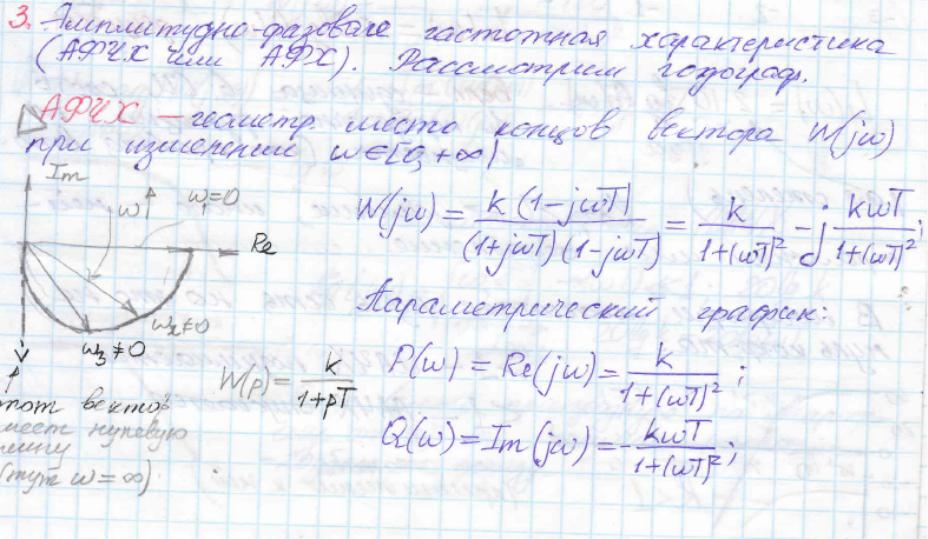 3. Амплитудно-фазовая частотная характеристика
(АФЧХ или АФХ). Рассмотрим годограф.
АФЧХ – геометр. место концов вектора W(jω)
при изменении ω∈[0, +∞)
Im
ω↑
ω₁=0
Re
ω₂≠0
ω₃≠0
W(jω) = k(1-jωT) / (1+jωT)(1-jωT) = k / 1+(ωT)² - j kωT / 1+(ωT)² ;
Параметрический график:
W(p) = k / 1+pT
P(ω) = Re(jω) = k / 1+(ωT)² ;
Q(ω) = Im(jω) = - kωT / 1+(ωT)² ;
этот вектор
имеет нулевую
длину
(тут ω = ∞)